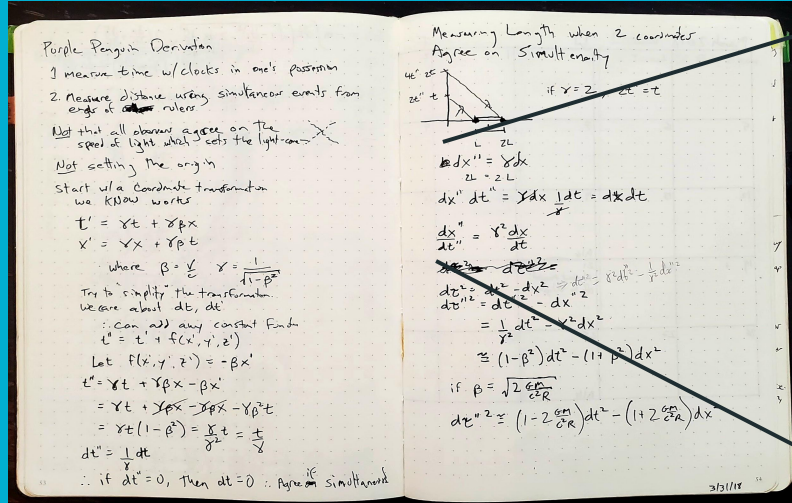 Purple Penguin Derivation
1 measure time w/clocks in one's possession
2. Measure distance using simultaneous events from
ends of rulers
Not that all observers agree on the
speed of light which sets the light-cone
Not setting the origin
Start w/a coordinate transformation
we KNOW works
t' = γt + γβx
x' = γx + γβt
where β = v/c γ = 1/√(1-β²)
Try to "simplify" the transformation.
We care about dt, dt'
∴ can add any constant
t" = t' + f(x', y', z')
Let f(x', y', z') = -βx'
t" = γt + γβx - βx'
= γt + γβx - γβx - γβ²t
= γt(1-β²) = γ/γ² t = t/γ
dt" = 1/γ dt
∴ if dt" = 0, then dt = 0 ∴ Agree if simultaneous
Measuring Length when 2 coordinates
Agree on Simulteneity
4t" 2t
2t" t
L 2L
if γ = 2, 2t" = t
dx" = γdx
2L = 2L
dx" dt" = γdx 1/γ dt = dxdt
dx"/dt" = γ² dx/dt
dτ² = dt² - dx² ⇒ dτ² = γ²dt"² - 1/γ² dx"²
dτ"² = dt"² - dx"²
= 1/γ² dt² - γ²dx²
≅ (1-β²)dt² - (1+β²)dx²
if β = √(2 GM/c²R)
dτ"² ≅ (1-2 GM/c²R)dt² - (1+2 GM/c²R)dx²
3/31/18